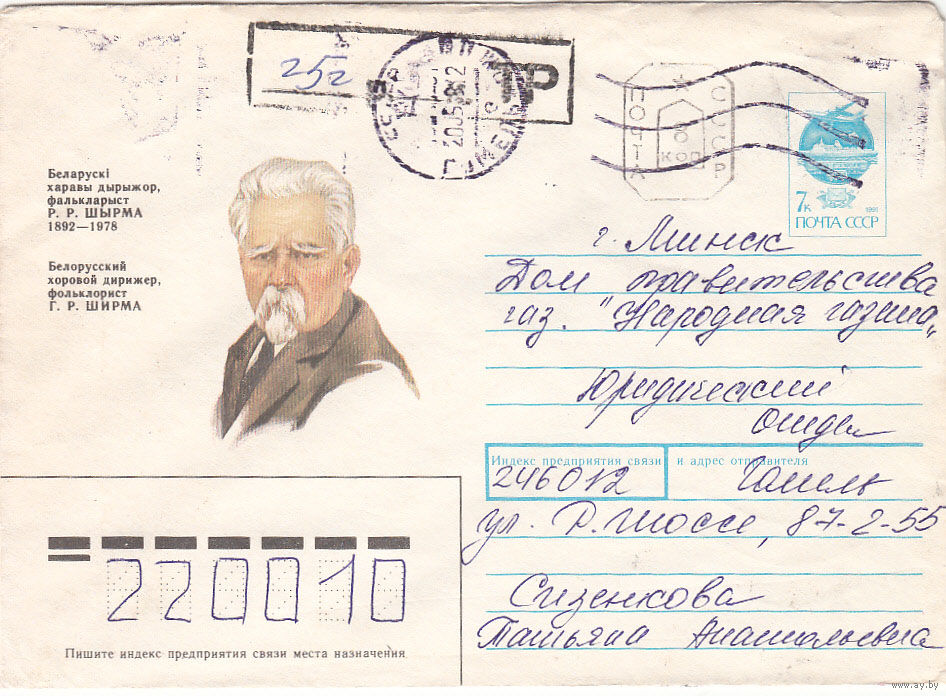 25г
Р
ПОЧТА
СССР
КОП
7к
1991
ПОЧТА СССР
Беларускі
харавы дырыжор,
фалькларыст
Р. Р. ШЫРМА
1892—1978
Белорусский
хоровой дирижер,
фольклорист
Г. Р. ШИРМА
г. Минск
Дом правительства
газ. "Народная газета"
Юридический
отдел
Индекс предприятия связи и адрес отправителя
246012 Гомель
ул. Р. Шоссе, 87-2-55
Сизенкова
Татьяна Анатольевна
220010
Пишите индекс предприятия связи места назначения
www.ay.by